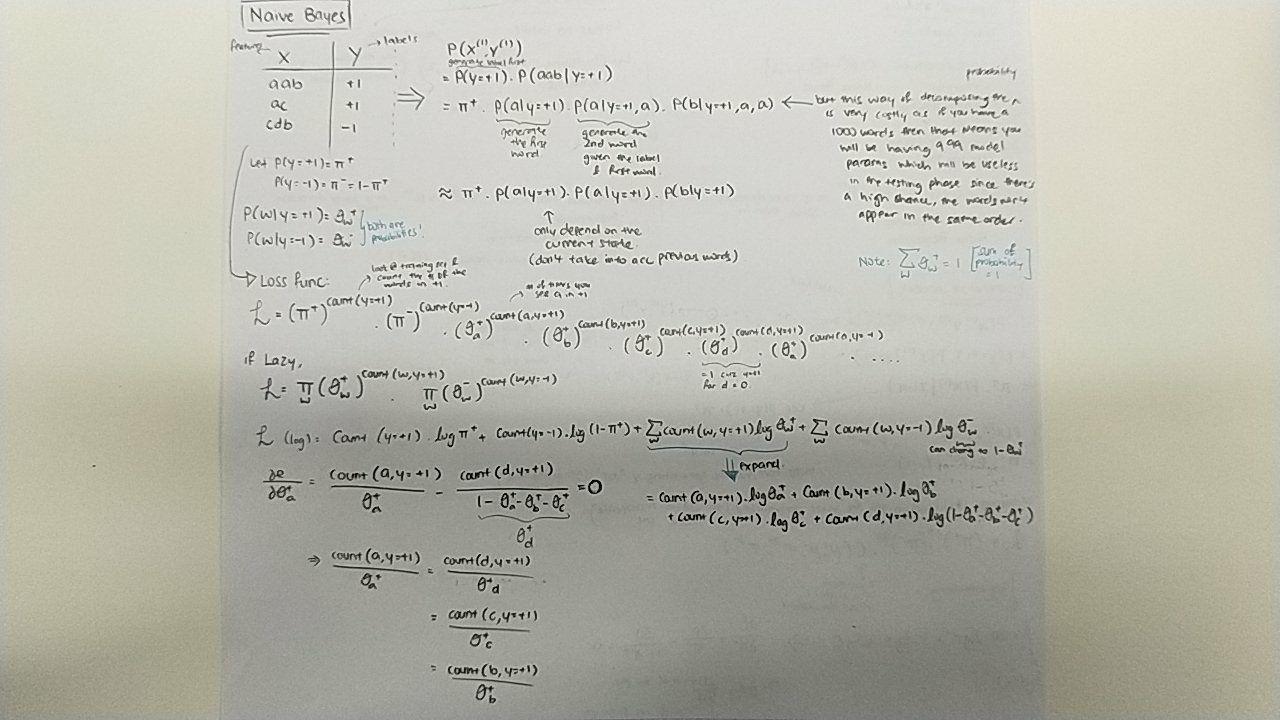 Naive Bayes
feature
X Y → labels
aab +1
ac +1
cdb -1
Let P(y=+1)=π⁺
P(y=-1)=π⁻=1-π⁺
P(w|y=+1)=θ_w⁺
P(w|y=-1)=θ_w⁻
both are
probabilities!
P(X⁽¹⁾,Y⁽¹⁾)
generate label first
= P(y=+1) . P(aab|y=+1)
⇒ = π⁺ . P(a|y=+1) . P(a|y=+1,a) . P(b|y=+1,a,a) ←
generate
the first
word
generate the
2nd word
given the label
& first word.
probability
but this way of decomposing the ^
is very costly as if you have a
1000 words then that means you
will be having 999 model
params which will be useless
in the testing phase since there's
a high chance, the words won't
appear in the same order.
≈ π⁺ . P(a|y=+1) . P(a|y=+1) . P(b|y=+1)
↑
only depend on the
current state.
(don't take into acc previous words)
Note: Σ_w θ_w⁺ = 1 [sum of
probability
= 1]
Loss Func:
look @ training set &
count the # of the
words in +1.
# of times you
see a in +1
L = (π⁺)^count(y=+1) . (π⁻)^count(y=-1) . (θ_a⁺)^count(a,y=+1) . (θ_b⁺)^count(b,y=+1) . (θ_c⁺)^count(c,y=+1) . (θ_d⁺)^count(d,y=+1) . (θ_a⁻)^count(a,y=-1) . ....
= 1 cuz y=+1
for d = 0.
if Lazy,
L = π_w (θ_w⁺)^count(w,y=+1) . π_w (θ_w⁻)^count(w,y=-1)
L (log) = Count (y=+1) . log π⁺ + Count(y=-1) . log (1-π⁺) + Σ_w count(w,y=+1) log θ_w⁺ + Σ_w count(w,y=-1) log θ_w⁻
can chang to 1-θ_w⁺
⇓ expand.
= count(a,y=+1) . log θ_a⁺ + Count(b,y=+1) . log θ_b⁺
+ count(c,y=+1) . log θ_c⁺ + Count(d,y=+1) . log(1-θ_a⁺-θ_b⁺-θ_c⁺)
∂ℓ/∂θ_a⁺ = count(a,y=+1)/θ_a⁺ - count(d,y=+1)/(1-θ_a⁺-θ_b⁺-θ_c⁺) = 0
θ_d⁺
⇒ count(a,y=+1)/θ_a⁺ = count(d,y=+1)/θ_d⁺
= count(c,y=+1)/θ_c⁺
= count(b,y=+1)/θ_b⁺